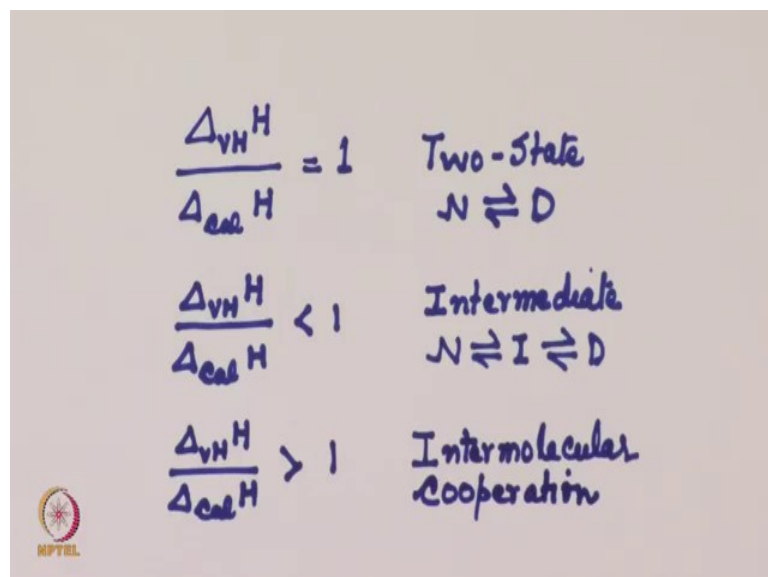 Δ_VH H / Δ_Cal H = 1 Two-State
N ⇌ D
Δ_VH H / Δ_Cal H < 1 Intermediate
N ⇌ I ⇌ D
Δ_VH H / Δ_Cal H > 1 Intermolecular
Cooperation
NPTEL